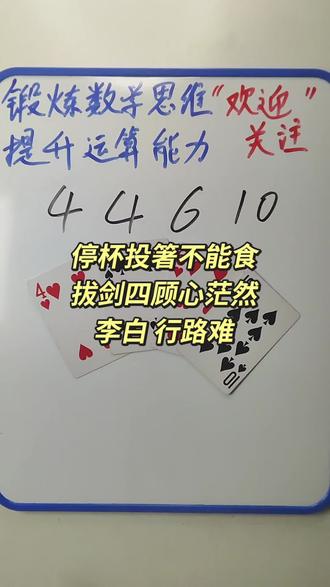 锻炼数学思维"欢迎"
提升运算能力 关注
4 4 6 10
停杯投箸不能食
拔剑四顾心茫然
李白 行路难
4
10